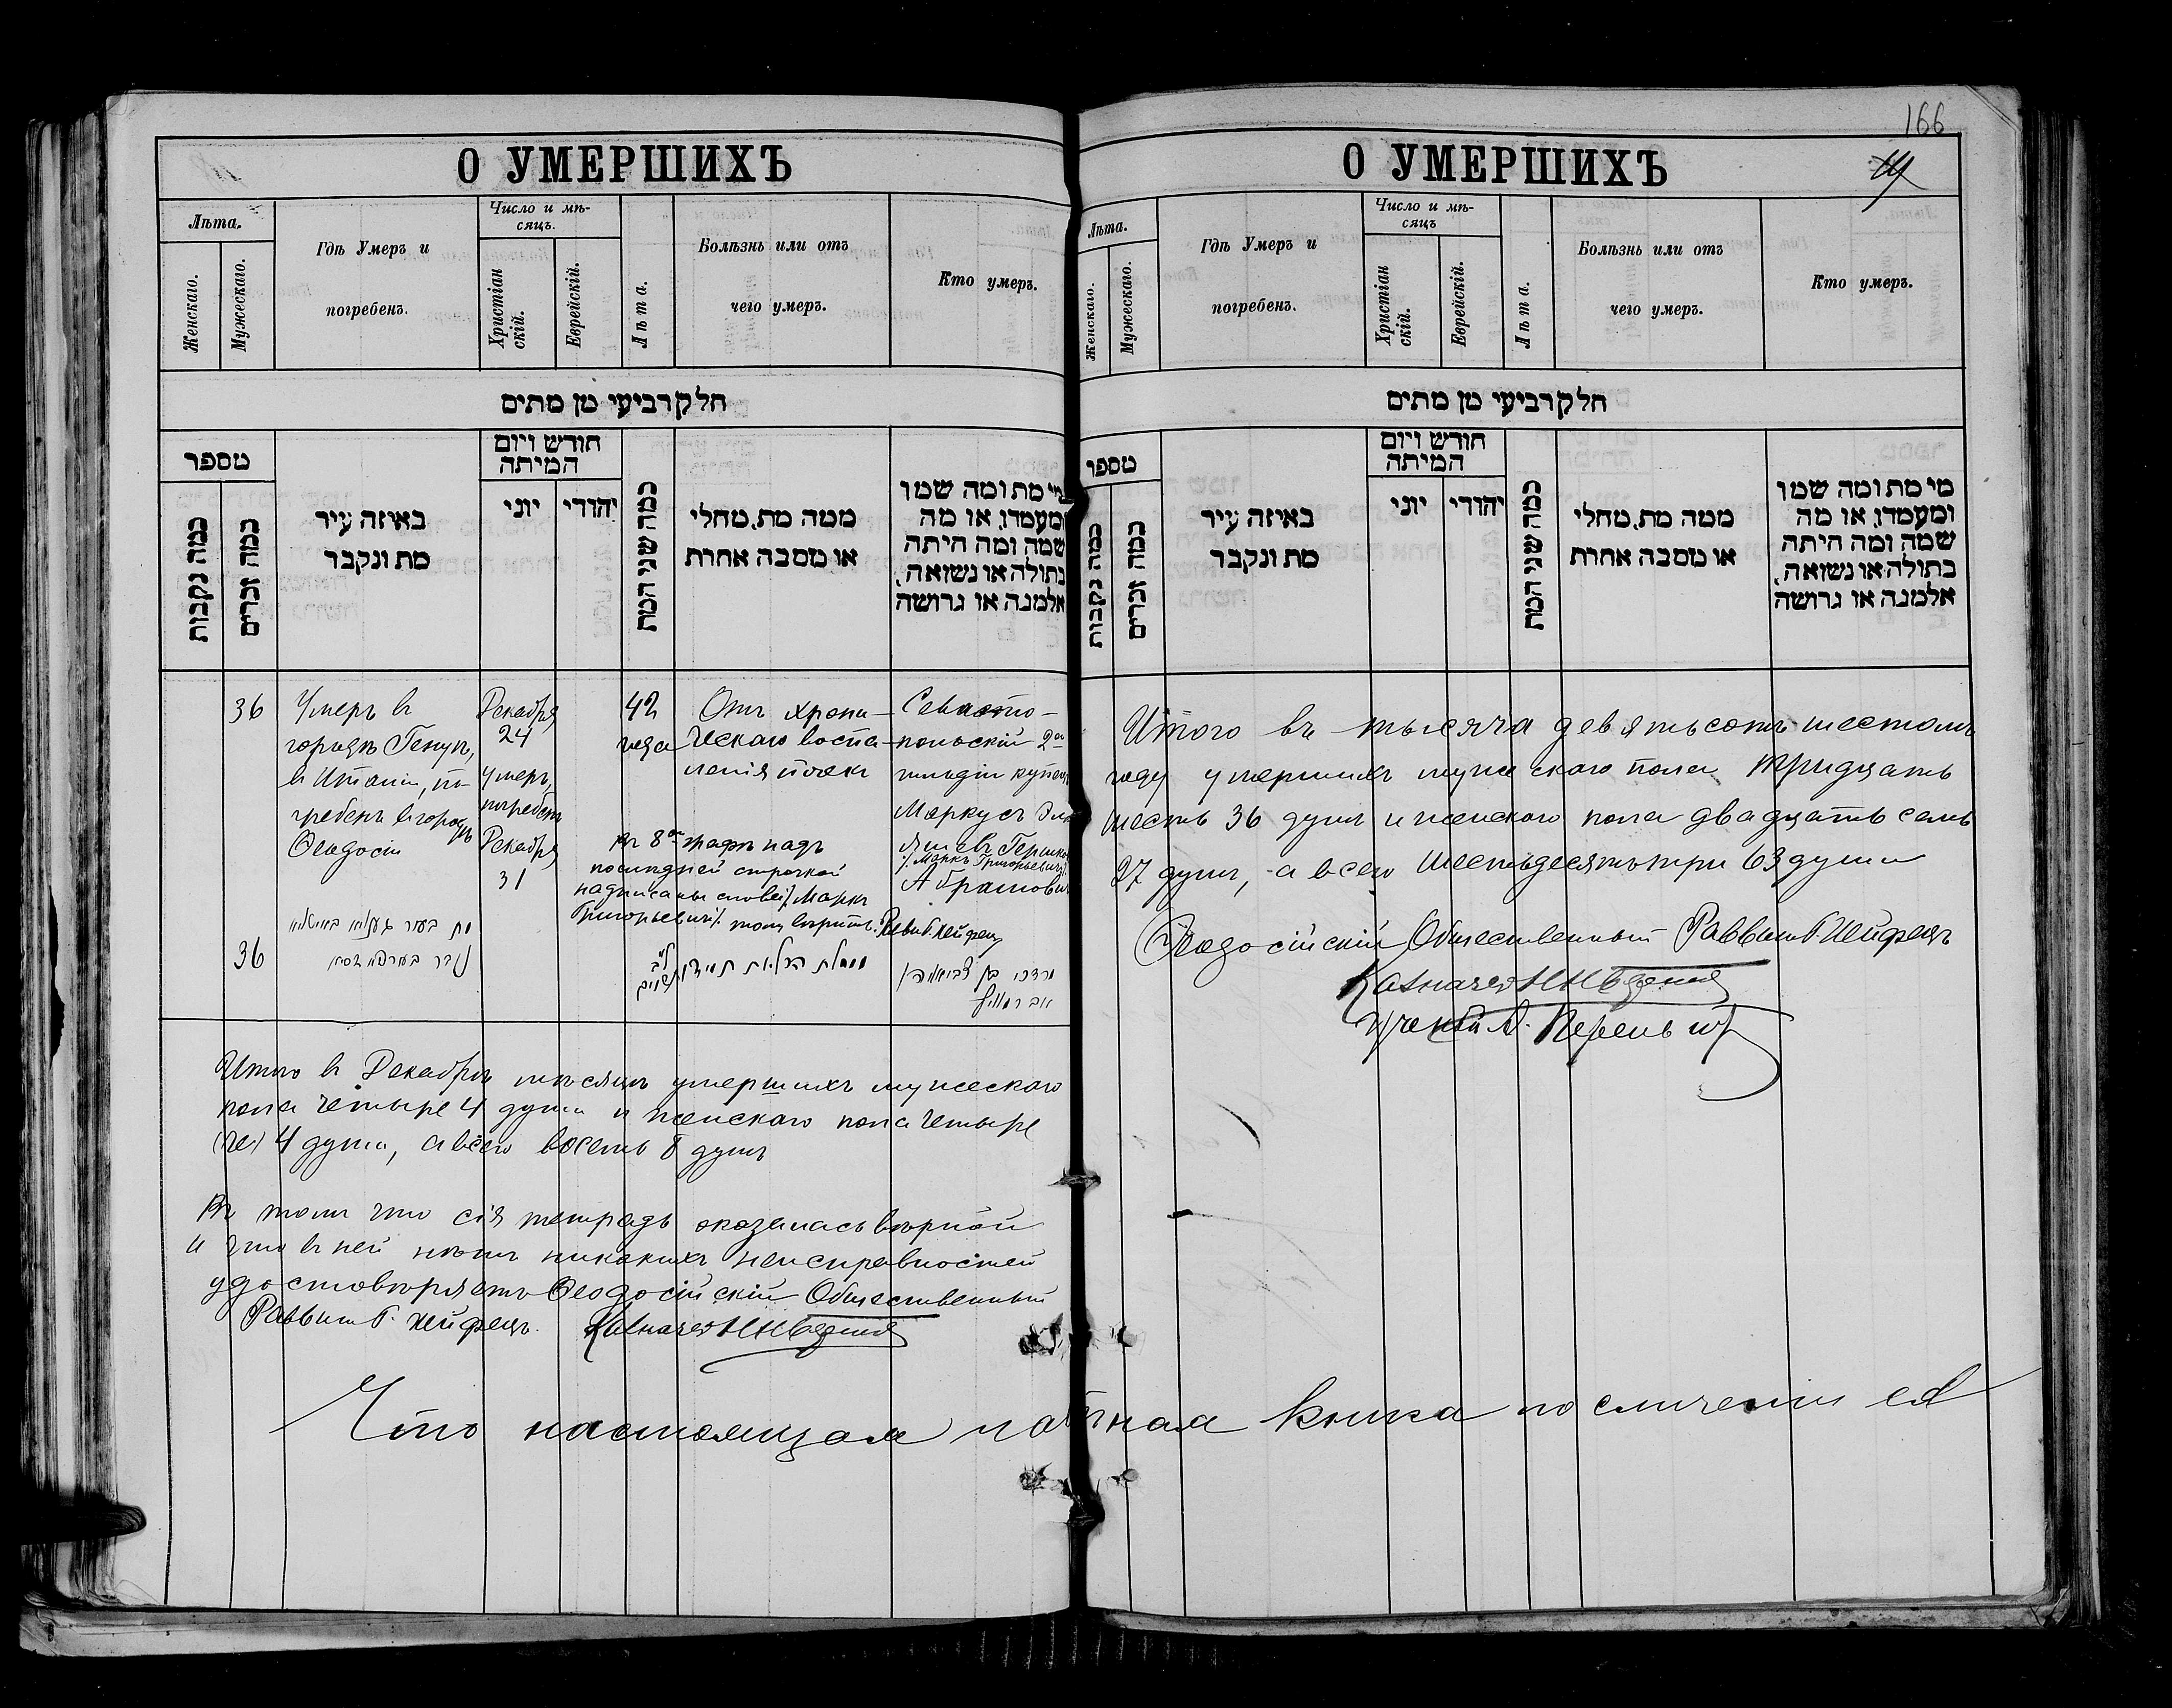 166
О УМЕРШИХЪ
Лѣта.
Женскаго.
Мужескаго.
Гдѣ Умеръ и
погребенъ.
Число и мѣ-
сяцъ.
Христіан
скій.
Еврейскій.
Лѣта.
Болѣзнь или отъ
чего умеръ.
Кто умеръ.
חלק רביעי מן מתים
מספר
כמה נקבות
כמה זכרים
באיזה עיר
מת ונקבר
חודש ויום
המיתה
יוני
יהודי
כמה שני המת
ממה מת, מחלי
או מסבה אחרת
מי מת ומה שמו
ומעמדו, או מה
שמה ומה היתה
בתולה או נשואה,
אלמנה או גרושה
36
Умеръ въ
городѣ Генуѣ,
въ Италіи, по-
гребенъ въ городѣ
Ѳеодосіи
Декабря
24
умеръ,
погребенъ
Декабря
31
42
года
Отъ хрони-
ческаго воспа-
ленія почекъ
Севасто-
польскій 2ой
гильдіи купецъ
Маркусъ
Абрамович
Въ 8ой графѣ надъ
послѣдней строчкой
надписаны слова /. Маркъ
Григорьевичъ /. тому вѣрить. Раввинъ Г. Хейфецъ
/. Маркъ Григорьевичъ /.
36
מרדכי בן
Итого въ Декабрѣ мѣсяцѣ умершихъ мужескаго
пола четыре 4 души и женскаго пола четыре
4 души, а всего восемь 8 душъ
Въ томъ что сія тетрадь оказалась вѣрной
и что въ ней нѣтъ никакихъ неисправностей
удостовѣряетъ Ѳеодосійскій Общественный
Раввинъ Г. Хейфецъ. Казначей
О УМЕРШИХЪ
Лѣта.
Женскаго.
Мужескаго.
Гдѣ Умеръ и
погребенъ.
Число и мѣ-
сяцъ
Христіан
скій.
Еврейскій.
Лѣта.
Болѣзнь или отъ
чего умеръ.
Кто умеръ.
חלק רביעי מן מתים
מספר
כמה נקבות
כמה זכרים
באיזה עיר
מת ונקבר
חודש ויום
המיתה
יוני
יהודי
כמה שני המת
ממה מת, מחלי
או מסבה אחרת
מי מת ומה שמו
ומעמדו, או מה
שמה ומה היתה
בתולה או נשואה,
אלמנה או גרושה
Итого въ тысяча девятьсотъ шестомъ
году умершихъ мужескаго пола тридцать
шесть 36 душъ и женскаго пола двадцать семь
27 душъ, а всего шестьдесятъ три 63 души
Ѳеодосійскій Общественный Раввинъ Г. Хейфецъ
Казначей
Ученый
Что настоящая книга по сличеніи ея